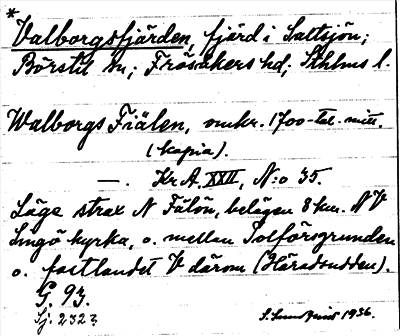 *
Valborgsfjärden, fjärd i Saltsjön;
Börstil sn; Frösåkers hd; Sthlms l.
Walborgs Fiälen, omkr. 1700-tal. mitt.
(kopia).
—. Kr A, XXII, N:o 35.
Läge strax N Fälön, belägen 8 km. NV
Singö kyrka, o. mellan Solförsgrunden
o. fastlandet V därom (Häradsudden).
G. 93.
Sj. 2323
1936.